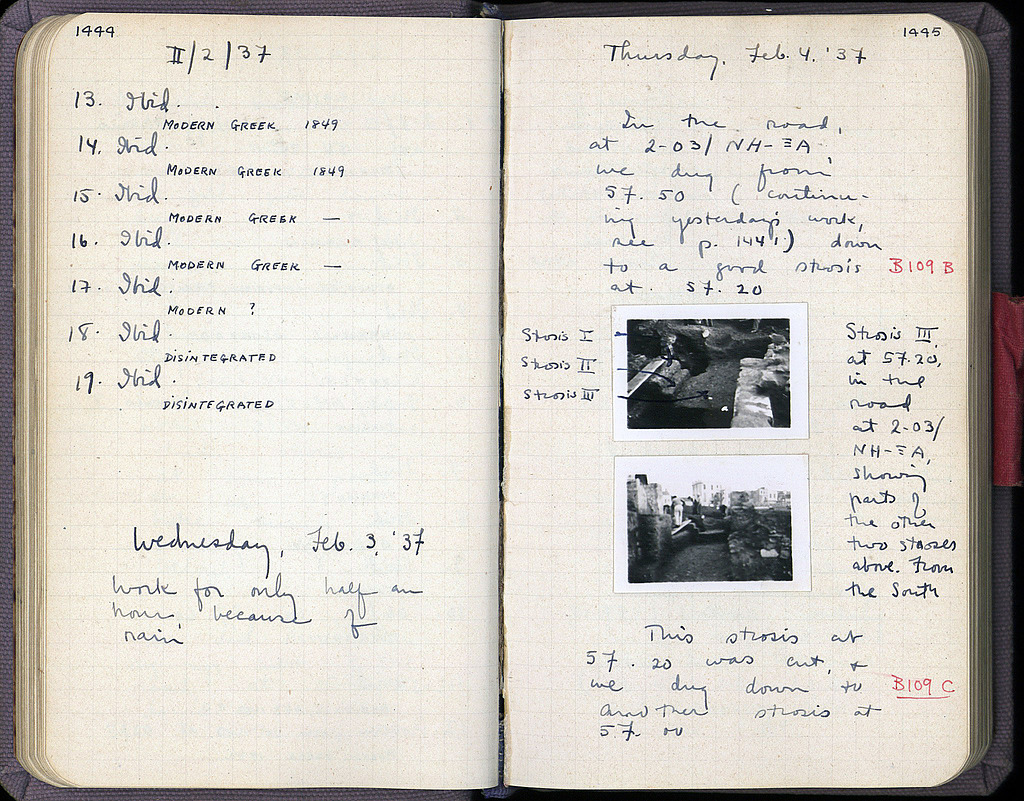 1444
II/2/37
13. Ibid.
MODERN GREEK 1849
14. Ibid.
MODERN GREEK 1849
15. Ibid.
MODERN GREEK —
16. Ibid.
MODERN GREEK —
17. Ibid.
MODERN ?
18. Ibid.
DISINTEGRATED
19. Ibid.
DISINTEGRATED
Wednesday, Feb. 3, '37
Work for only half an
hour, because of
rain
1445
Thursday, Feb. 4, '37
In the road,
at 2-03/ NH-ΞA,
we dug from
57.50 (continu-
ing yesterday's work,
see p. 1441) down
to a good strosis B109 B
at 57.20
Strosis I
Strosis II
Strosis III
a
Strosis III
at 57.20,
in the
road
at 2-03/
NH-ΞA,
showing
parts of
the other
two stroses
above. From
the South
This strosis at
57.20 was cut, &
we dug down to B109 C
another strosis at
57.00